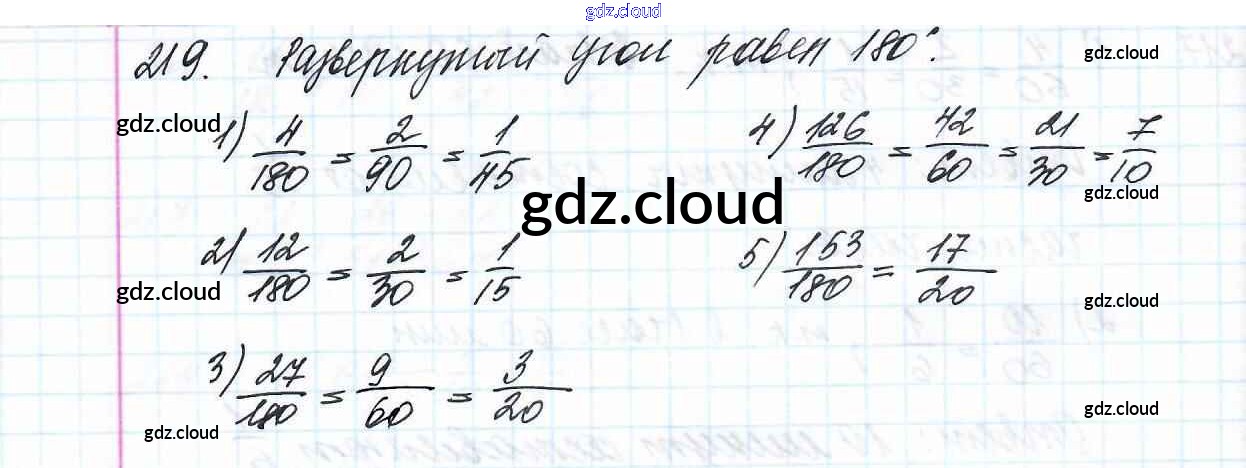 gdz.cloud
219. Развернутый угол равен 180°.
gdz.cloud
gdz.cloud
1) 4/180 = 2/90 = 1/45
4) 126/180 = 42/60 = 21/30 = 7/10
gdz.cloud
gdz.cloud
2) 12/180 = 2/30 = 1/15
5) 153/180 = 17/20
gdz.cloud
gdz.cloud
3) 27/180 = 9/60 = 3/20
gdz.cloud
gdz.cloud